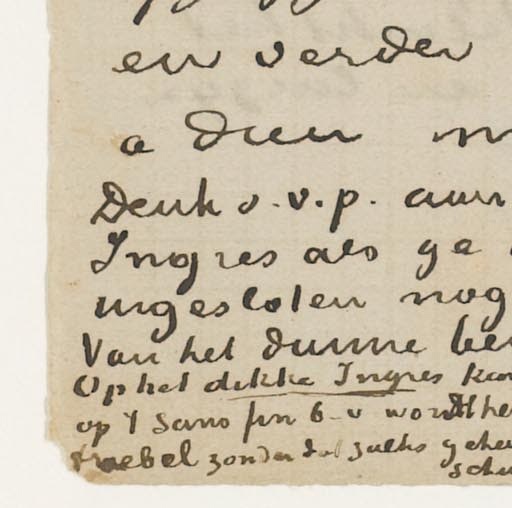 en verder
a Dieu m
Denk s.v.p. aan
Ingres als ge
ingesloten nog
Van het dunne
Op het dikke Ingres kan
op 't sans fin b-v wordt he
troebel zonder dat zulks